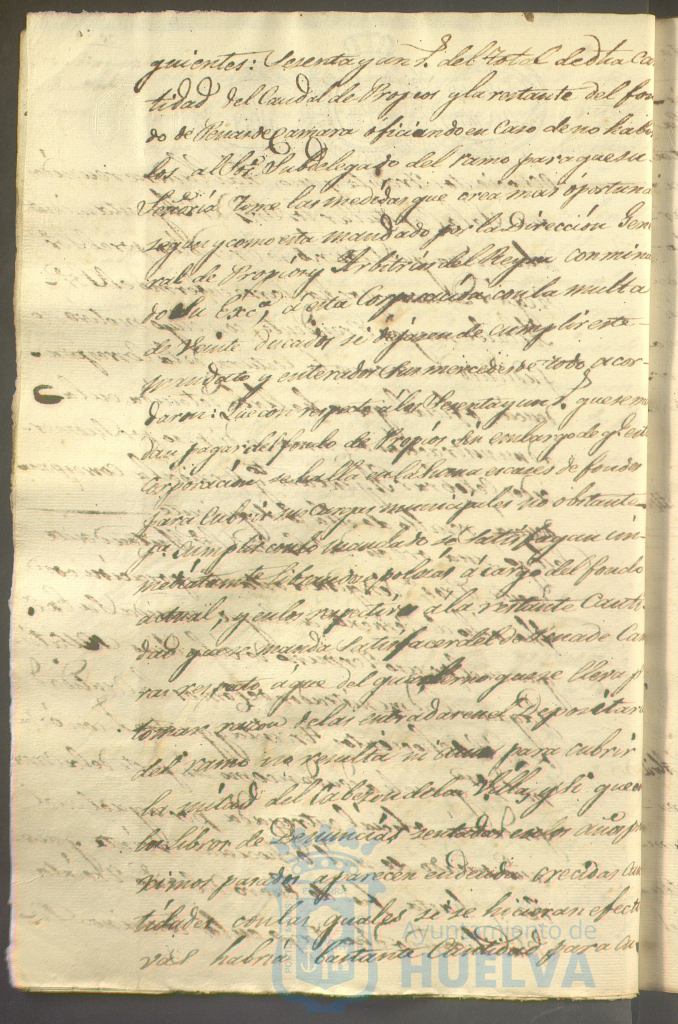 guientes: Sesenta y un r.s del total de dha Can
tidad del Caudal de Propios y la restante del fon-
do de Penas de Camara oficiando en caso de no haber
los al Sr. Subdelegado del ramo para que su
Señoria tome las medidas que crea mas oportunas
segun y como esta mandado por la Dirección Gene
ral de Propios y Arbitrios del Reyno conminan
do Su Exc.a á esta Corporación con la multa
de Veinte ducados si dejasen de cumplir este
mandato y enterados sus mercedes de todo acor-
daron: Que con respeto á los Sesenta y un r.s que se man
dan pagar del fondo de Propios sin embargo de q.e esta
Corporación se halla en la mayor escases de fondos
para cubrir sus cargas municipales no obstante
p.a cumplir con lo mandado se satisfagan in-
mediatamente librandose polisas á cargo del fondo
actual; y en lo respectivo á la restante Canti
dad que se manda satisfacer del de Penas de Cama
ras respeto a que del quaderno que se lleva p.a
tomar razon de las entradas en el Depositario
del ramo no resulta ni aun para cubrir
la mitad del Cabeson de la Villa, y si que en
los libros de Denuncias sentadas en los años pro
ximos pasados aparecen en deuda crecidas can
tidades con las quales si se hicieran efecti
vas habria bastante Cantidad para cu
Ayuntamiento de
HUELVA